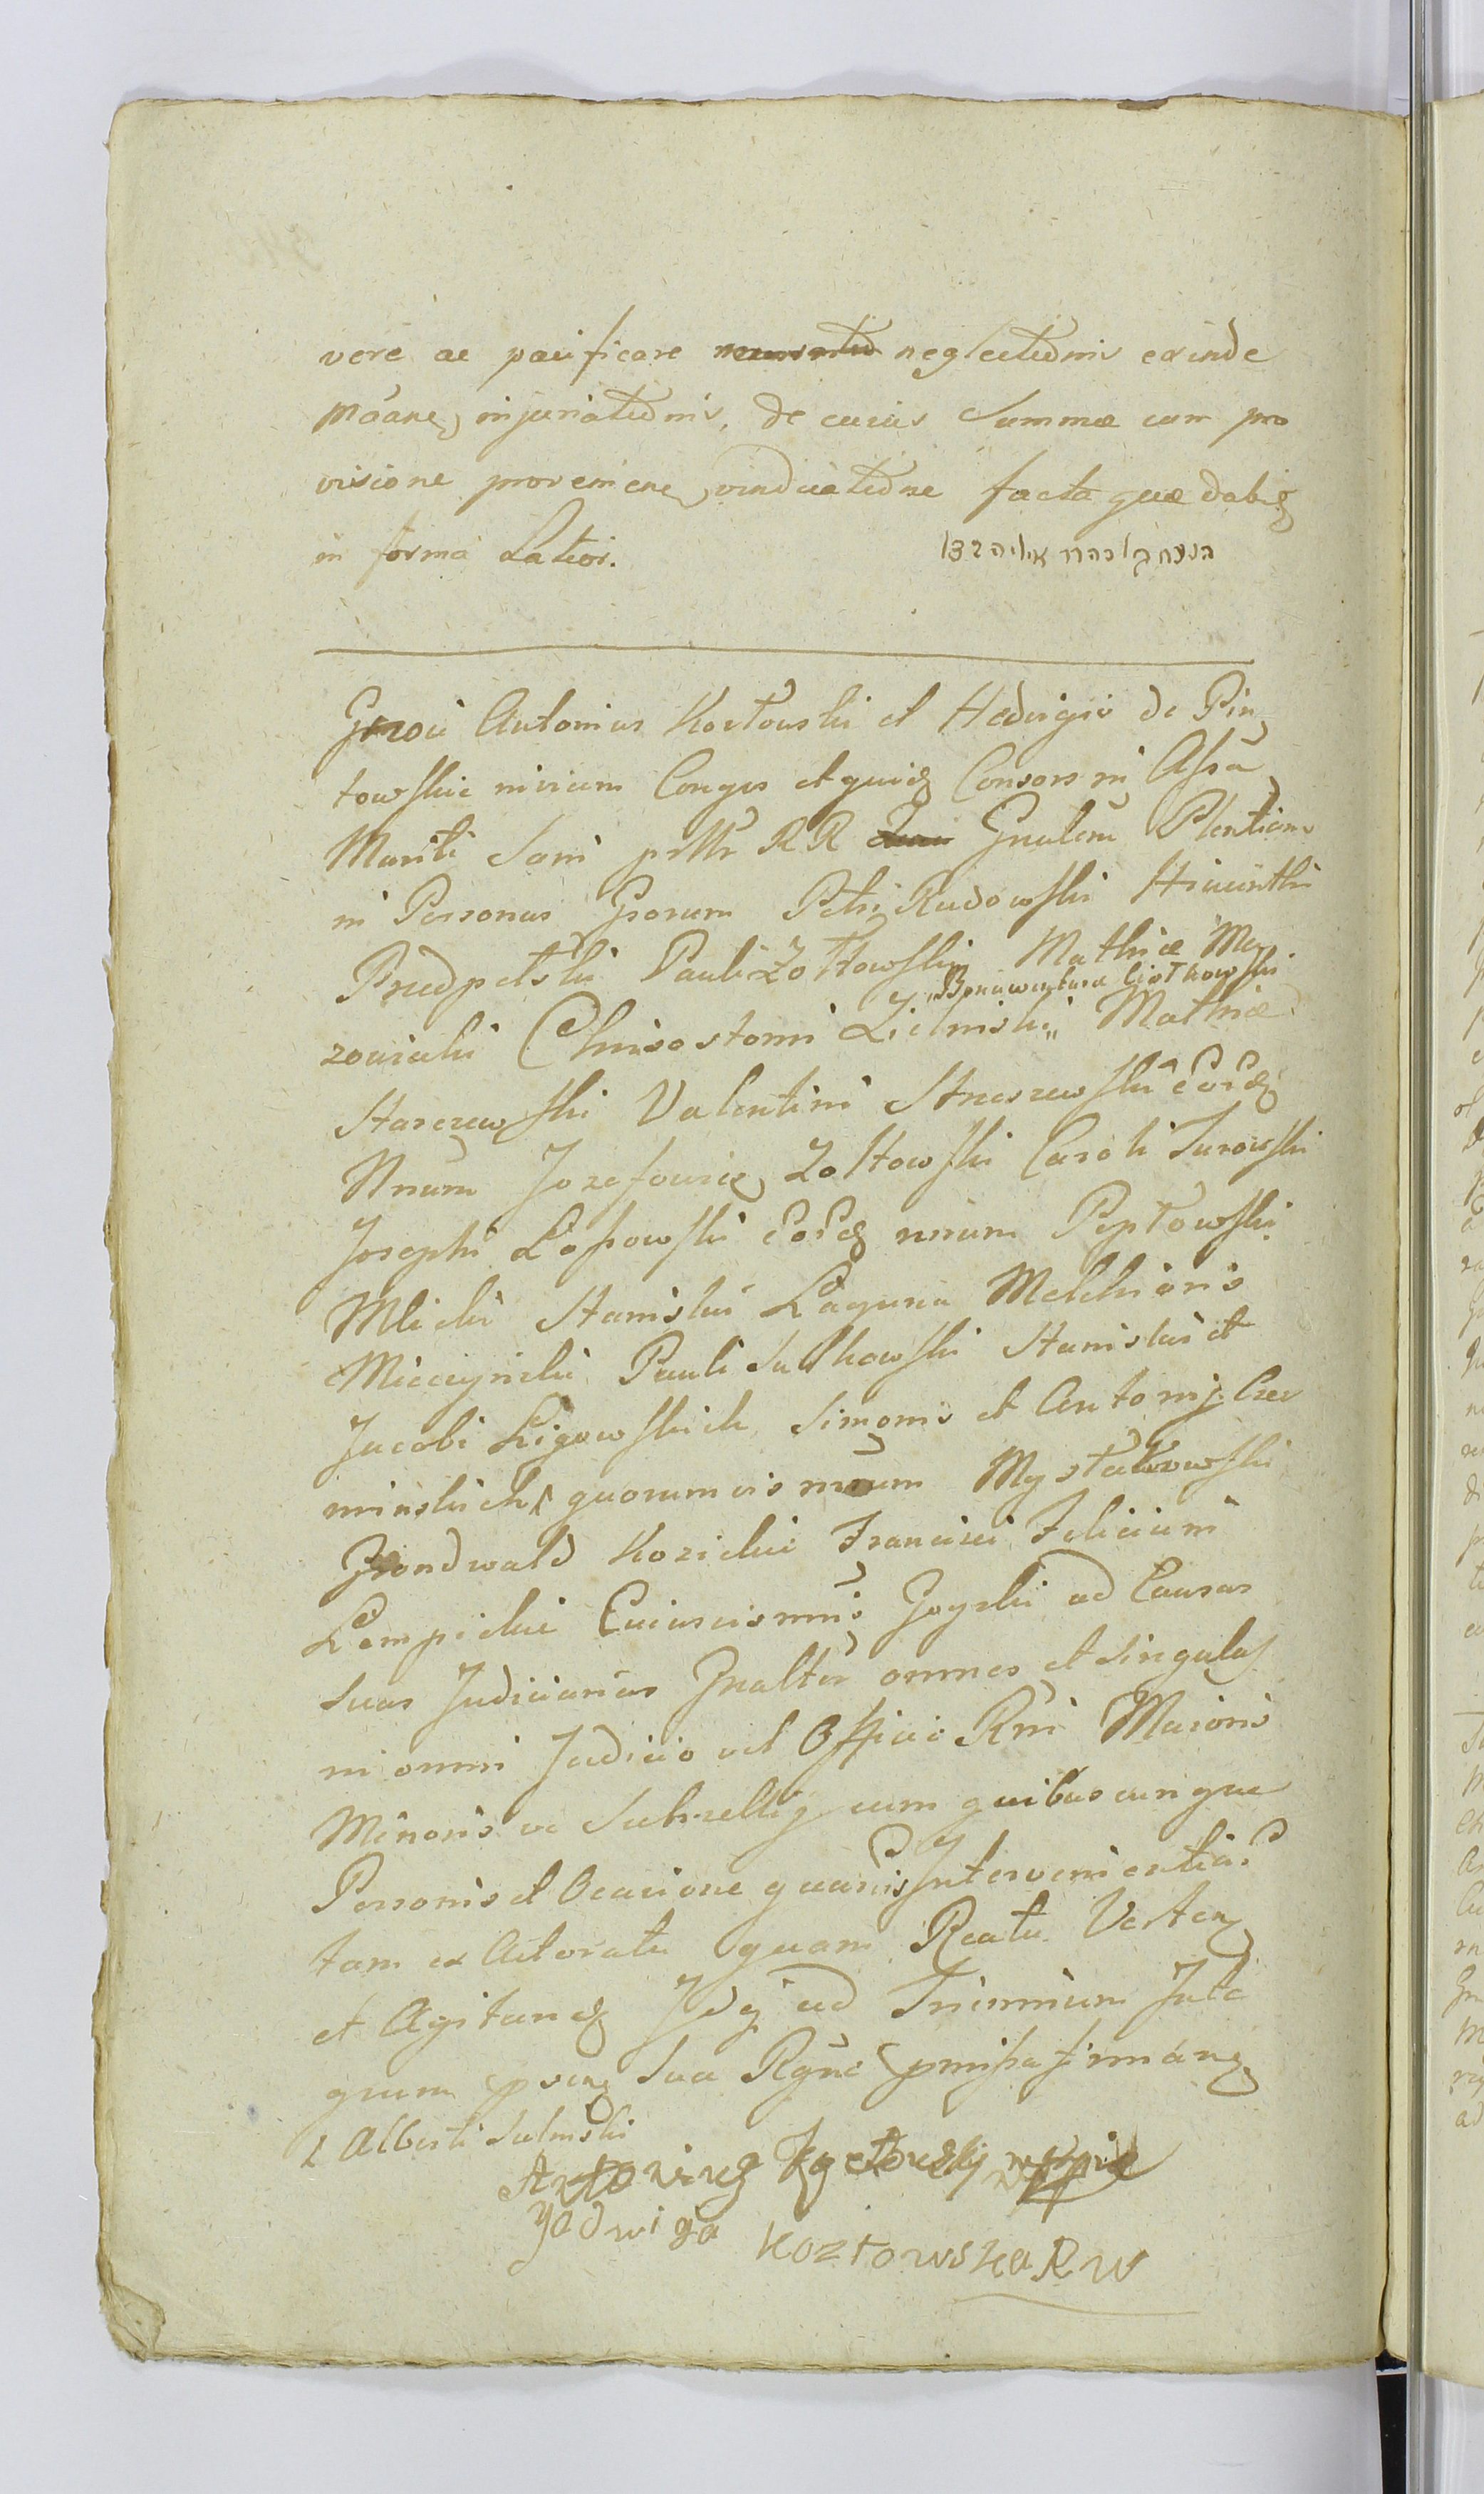 vere ac pacificare neglectûmis exinde
máane, injuriatûmis, de cuius Summæ cum pro
visione provenien, vindicatûne facta quæ dabiq
in forma Latior.
Grosi Antonius Kozłowski et Hedvigis de Pin
towskie nivicem Conges et quidq Consors in Assa
Mariti Sani prtti RR Gnalem Plentiam
in Personas Grorum Petri Rudowski Hiacinthi
Przedpełski Pauli Zołtowski Mathiæ Mą
„Bonawentura Ciołkowski
zowiecki Chrisostomi Zielinski „ Mathiæ
Starczewski Valentini Strzeszewski eorq
Nrum Jozefowicz Zołtowski Caroli Turowski
Josephi Łossowski eorq nrum Peptowski
Mlicki Stanislai Laguna Melchioris
Mieczynski Pauli Sułkowski Stanislai et
Jacobi Ligowskich Simonis et Antonij Czer
minskich quorumvis nrum Mystkowski
Grondwald Kozicki Francisci Feliciani
Lempicki Cuiusvis nris Goyski ad Causas
suas Judiciarias Gnaliter omnes et singulas
in omni Judicio vel Officio Rni Maioris
Minoris ve Subsellij cum quibuscunque
Personis et Occacione quavis Intervenientia
tam ex Actoratu quam Reatu Verten
et Agitandq Idq ad Trinnium Inte
grum psens Sua Rgne pmissa firmánq
Alberti Sulinski
Antoniusz Kozłowskÿ mppia
Jadwiga Kozłowska R W